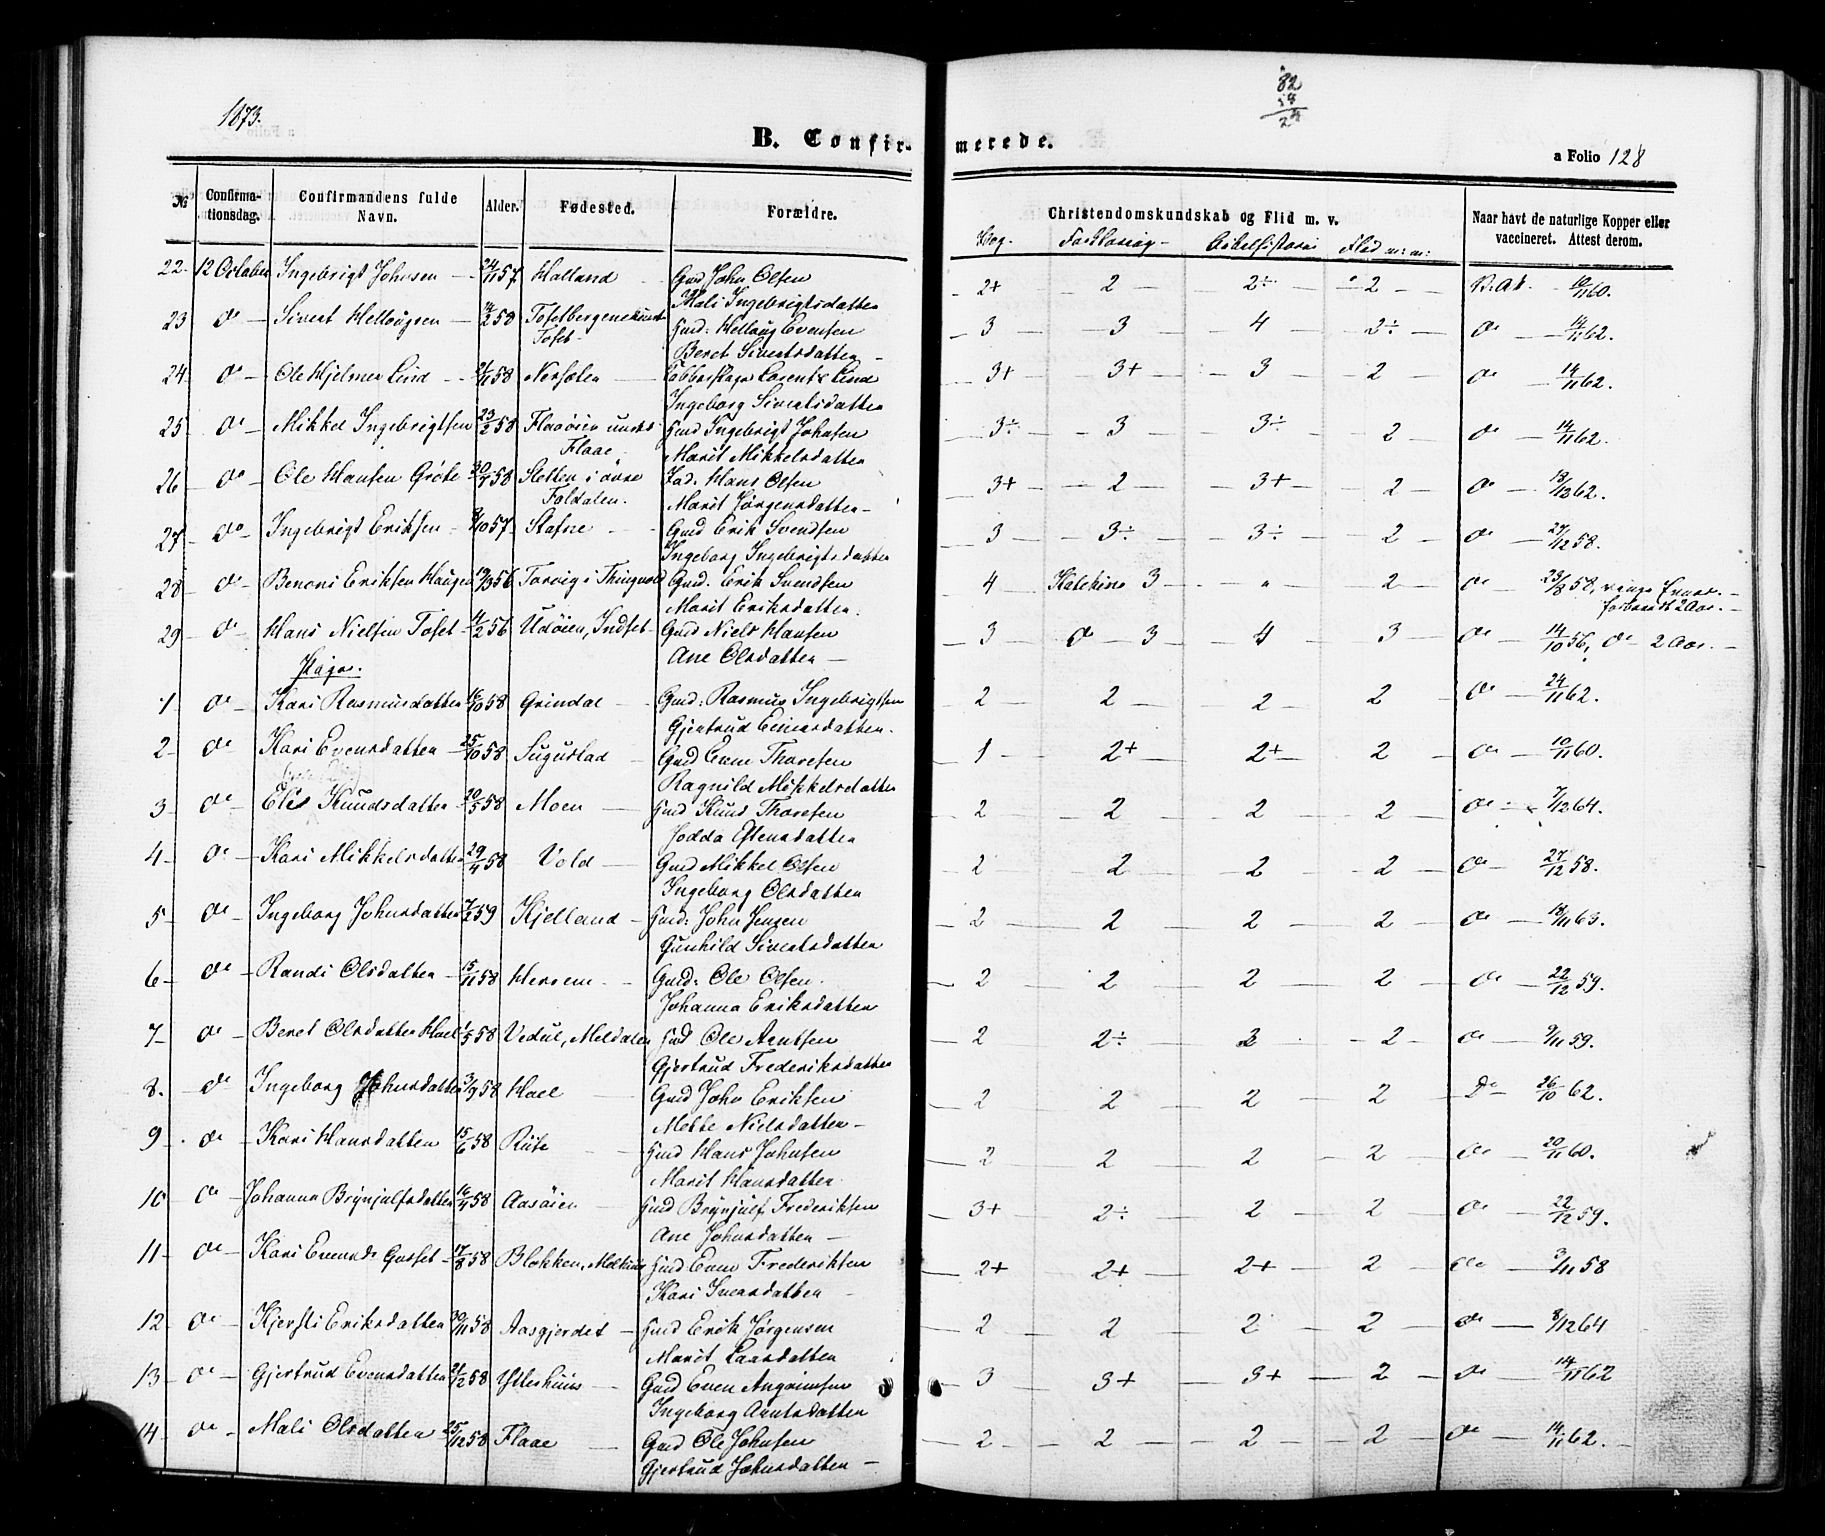 1873.
82
58
24
B. Confirmerede.
a Folio 128
№ Confirmationsdag. Confirmandens fulde Navn. Alder. Fødested. Forældre. Christendomskundskab og Flid m. v. Naar havt de naturlige Kopper eller vaccineret. Attest derom.
Bog. Forklaring Bibelhistorie Flid m: m:
22. 12 October Ingebrigt Johnsen 24/11 57 Halland Gmd John Olsen 2+ 2 2÷ 2 V. At. 10/11 60.
Mali Ingebrigtsdatter
23 do Sivert Hellougsen 14/2 58 Tosetbergene under Gmd: Helloug Evensen 3 3 4 2÷ do 14/11 62.
Toset Beret Sivertsdatter
24 do Ole Hjelmer Lind 21/11 58 Nersolen Lorents Lind 3+ 3+ 3 2 do 14/11 62.
Ingeborg Sivertsdatter
25 do Mikkel Ingebrigtsen 23/2 58 Flaaøien under Gmd Ingebrigt Johnsen 3÷ 3 3÷ 2 do 14/11 62.
Flaae Marit Mikkelsdatter
26 do Ole Hansen Grøte 30/7 58 Sletten i øvre Ind. Hans Olsen 3+ 2 3+ 2 do 18/12 62.
Foldalen. Marit Jørgensdatter
27 do Ingebrigt Eriksen 8/10 57 Stafne Gmd Erik Svendsen 3 3÷ 3÷ 2 do 27/12 58.
Ingeborg Ingebrigtsdatter
28 do Benoni Eriksen Haugen 19/3 56 Torvig i Thingvold Gmd. Erik Svendsen 4 Katekisme 3 " 2 do 23/8 58, ringe Evner.
Marit Eriksdatter. forbered 2 Aar.
29 do Hans Nielsen Toset 4/2 56 Udøien, Indset Gmd Niels Hansen 3 do 3 4 3 do 14/10 56, do 2 Aar.
Ane Olsdatter
Piger.
1 do Kari Rasmusdatter 16/10 58 Grindal Gmd: Rasmus Ingebrigtsen 2 2 2 2 do 24/11 62.
Gjertrud Einersdatter.
2 do Kari Evensdatter 25/10 58 Sugustad Gmd Even Thoresen 1 2+ 2+ 2 do 10/11 60.
Ragnild Mikkelsdatter
3 do Eli Knudsdatter 20/5 58 Moen Gmd Knud Thoresen 2 2 2 2 do 7/12 64.
Jodda Estensdatter
4 do Kari Mikkelsdatter 29/4 58 Vold Gmd Mikkel Olsen 2 2 2 2 do 27/12 58.
Ingeborg Olsdatter
5 do Ingeborg Johnsdatter 7/2 59 Kjelland Gmd: John Jensen 2 2 2 2 do 18/11 63.
Gunhild Sivertsdatter
6 do Randi Olsdatter 15/11 58 Herrem Gmd: Ole Olsen. 2 2 2 2 do 22/12 59.
Johanna Eriksdatter
7 do Beret Olsdatter Hael 1/5 58 Vedul, Meldalen Gmd Ole Arntsen 2 2÷ 3 2 do 9/11 59.
Gjertrud Frederiksdatter
8. do Ingeborg Johnsdatter 3/9 58 Hael Gmd John Eriksen 2 2 2 2 do 26/10 62.
Mette Nielsdatter
9 do Kari Hansdatter 15/6 58 Rute Gmd Hans Johnsen 2 2 2 2 do 20/11 60.
Marit Hansdatter
10 do Johanna Brynjulfsdatter 16/4 58 Aasøien Gmd Brynjulf Frederiksen 3+ 2÷ 2 2 do 22/12 59.
Ane Johnsdatter
11 do Kari Evensd. Gasset 17/8 58 Blokken, Gmd Even Frederiksen 2+ 2+ 2+ 2 do 3/11 58
Kari Ivarsdatter
12 do Kjersti Eriksdatter 30/11 58 Aasgjerdet Gmd Erik Jørgensen 2 2 2 2 do 8/12 64
Marit Larsdatter
13 do Gjertrud Evensdatter 21/2 58 Ytterhuus Gmd Even Angrimsen 3 3+ 3+ 2 do 14/11 62
Ingeborg Arntsdatter
14 do Mali Olsdatter 25/12 58 Flaae Gmd Ole Johnsen 2 2 2 2 do 14/11 62.
Gjertrud Johnsdatter